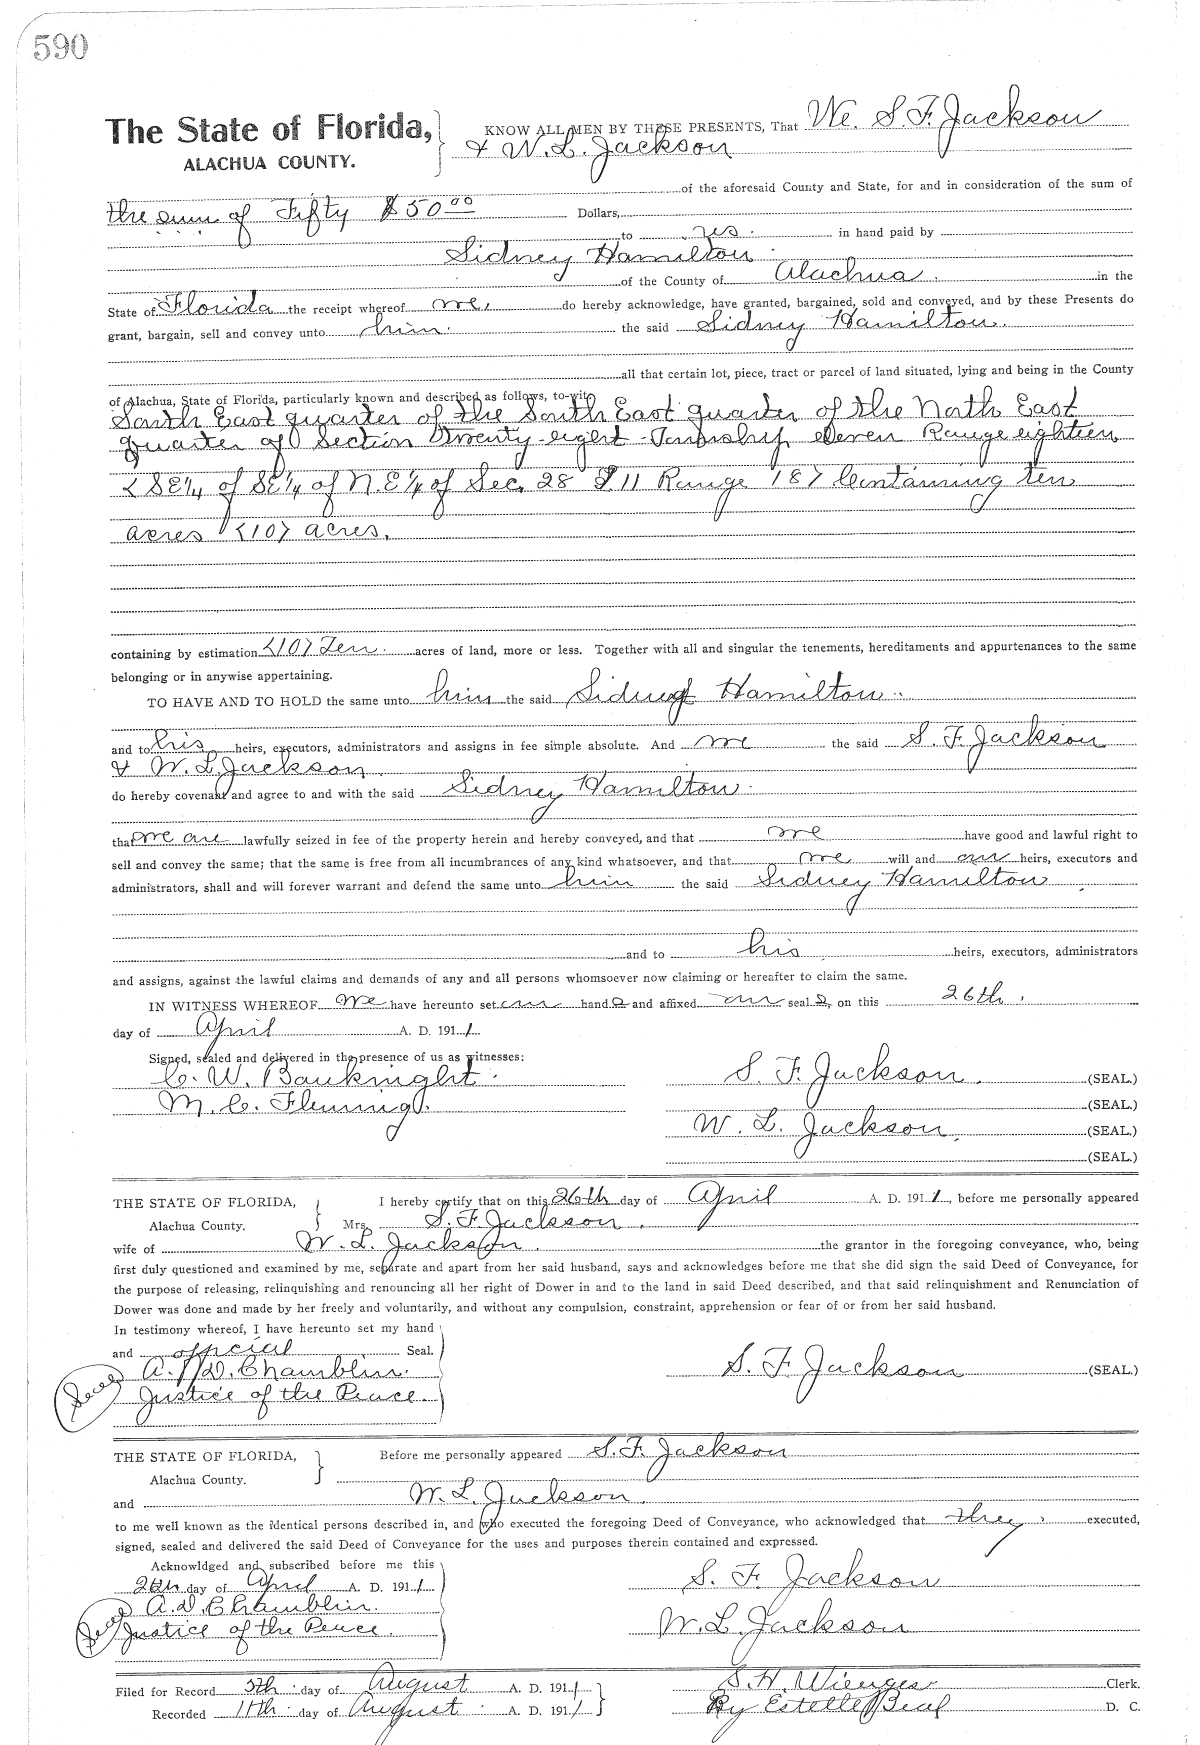 590
The State of Florida, KNOW ALL MEN BY THESE PRESENTS, That We. S. F. Jackson
ALACHUA COUNTY. & W. L. Jackson
of the aforesaid County and State, for and in consideration of the sum of
the sum of Fifty $50.00 Dollars,
to us. in hand paid by
Sidney Hamilton
of the County of Alachua. in the
State of Florida the receipt whereof we, do hereby acknowledge, have granted, bargained, sold and conveyed, and by these Presents do
grant, bargain, sell and convey unto him. the said Sidney Hamilton.
all that certain lot, piece, tract or parcel of land situated, lying and being in the County
of Alachua, State of Florida, particularly known and described as follows, to-wit:
South East quarter of the South East quarter of the North East
quarter of Section Twenty-eight Township eleven Range eighteen
<SE¼ of SE¼ of N.E¼ of Sec. 28 T. 11 Range 18> Containing ten
acres <10> acres.
containing by estimation <10> Ten. acres of land, more or less. Together with all and singular the tenements, hereditaments and appurtenances to the same
belonging or in anywise appertaining.
TO HAVE AND TO HOLD the same unto him the said Sidney Hamilton.
and to his heirs, executors, administrators and assigns in fee simple absolute. And we the said S. F. Jackson
& W. L. Jackson.
do hereby covenant and agree to and with the said Sidney Hamilton.
that we are lawfully seized in fee of the property herein and hereby conveyed, and that we have good and lawful right to
sell and convey the same; that the same is free from all incumbrances of any kind whatsoever, and that we will and our heirs, executors and
administrators, shall and will forever warrant and defend the same unto him the said Sidney Hamilton
and to his heirs, executors, administrators
and assigns, against the lawful claims and demands of any and all persons whomsoever now claiming or hereafter to claim the same.
IN WITNESS WHEREOF We have hereunto set our hand s and affixed our seal s, on this 26th.
day of April A. D. 1911.
Signed, sealed and delivered in the presence of us as witnesses:
C. W. Bauknight. S. F. Jackson. (SEAL.)
M. C. Fleming. (SEAL.)
W. L. Jackson. (SEAL.)
(SEAL.)
THE STATE OF FLORIDA, I hereby certify that on this 26th day of April A. D. 1911, before me personally appeared
Alachua County. Mrs. S. F. Jackson.
wife of W. L. Jackson. the grantor in the foregoing conveyance, who, being
first duly questioned and examined by me, separate and apart from her said husband, says and acknowledges before me that she did sign the said Deed of Conveyance, for
the purpose of releasing, relinquishing and renouncing all her right of Dower in and to the land in said Deed described, and that said relinquishment and Renunciation of
Dower was done and made by her freely and voluntarily, and without any compulsion, constraint, apprehension or fear of or from her said husband.
In testimony whereof, I have hereunto set my hand
and official Seal.
Seal A. D. Chamblin. S. F. Jackson (SEAL)
Justice of the Peace.
THE STATE OF FLORIDA, Before me personally appeared S. F. Jackson
Alachua County.
and W. L. Jackson.
to me well known as the identical persons described in, and who executed the foregoing Deed of Conveyance, who acknowledged that they executed,
signed, sealed and delivered the said Deed of Conveyance for the uses and purposes therein contained and expressed.
Acknowldged and subscribed before me this
26th day of April A. D. 1911. S. F. Jackson
A. D. Chamblin.
Seal Justice of the Peace. W. L. Jackson
Filed for Record 5th day of August A. D. 1911. S. H. Wienges Clerk.
Recorded 11th day of August A. D. 1911. By Estelle Beal D. C.